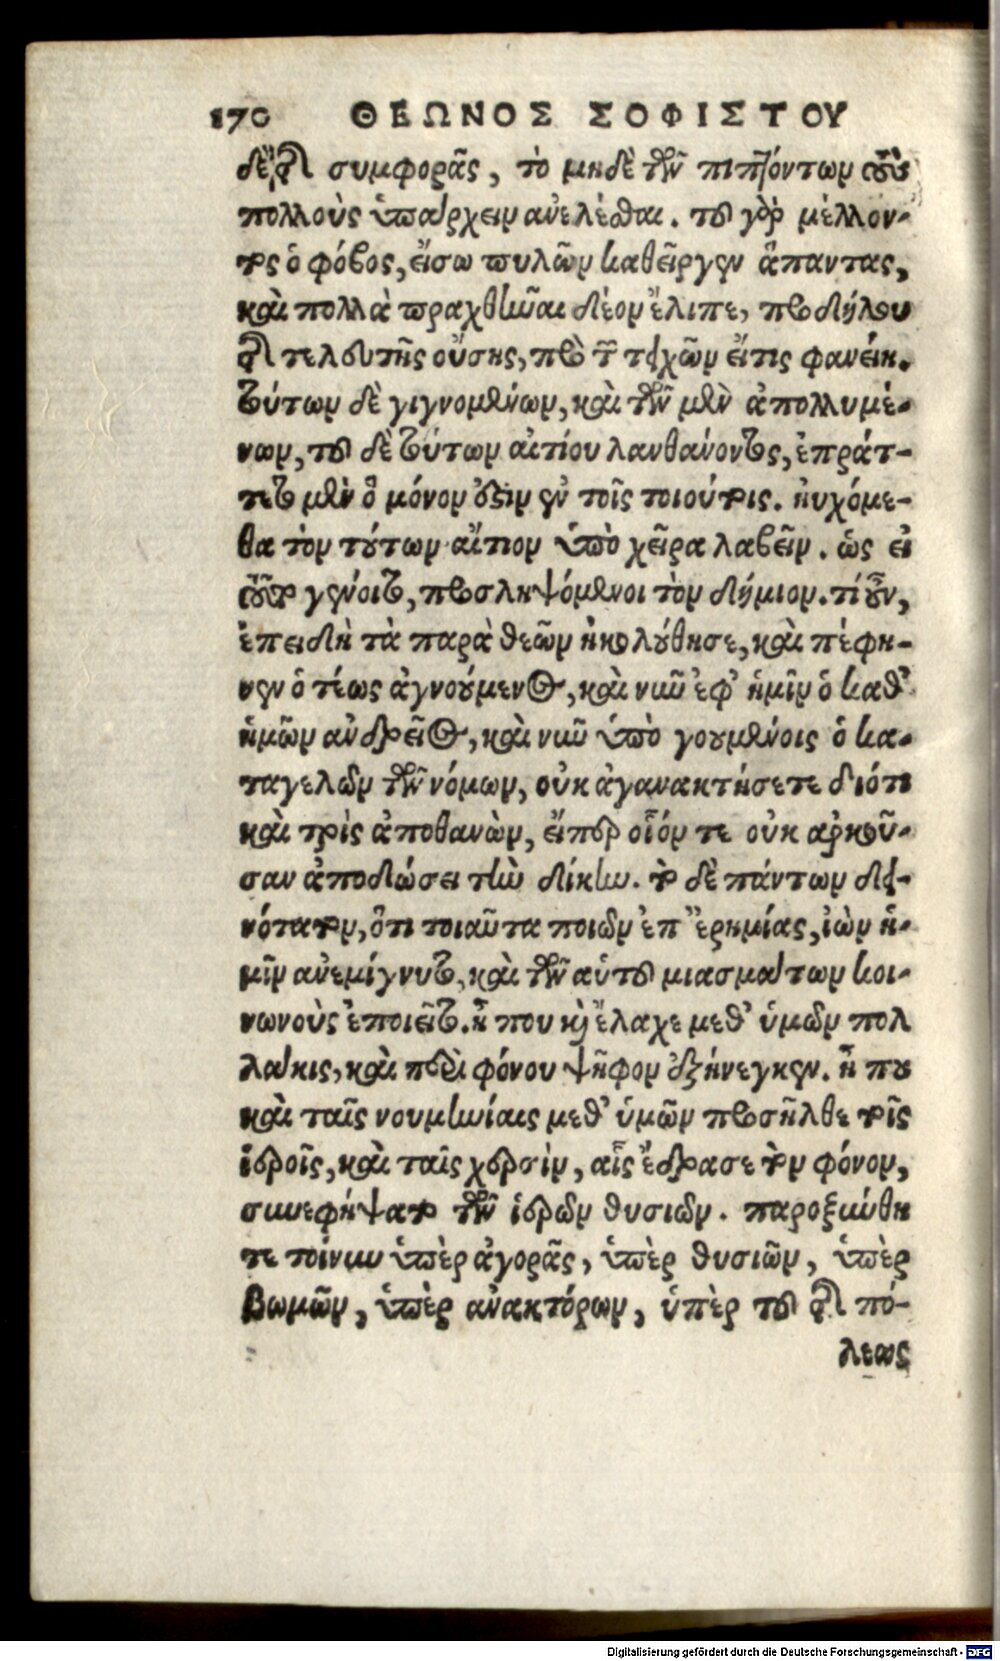 170 ΘΕΩΝΟΣ ΣΟΦΙΣΤΟΥ
δὲ τῆς συμφορᾶς, τὸ μηδὲ τῶν πιπτόντων τοὺς
πολλοὺς ὑπάρχειν ἀνελέσθαι. τοῦ γὰρ μέλλον-
τος ὁ φόβος, εἴσω πυλῶν καθεῖργεν ἅπαντας,
καὶ πολλὰ πραχθῆναι δέον ἔλιπε, πρὸ δήλου
τῆς τελευτῆς οὔσης, πρὸ τῶν τειχῶν εἴτις φανείη.
τούτων δὲ γιγνομένων, καὶ τῶν μὲν ἀπολλυμέ-
νων, τοῦ δὲ τούτων αἰτίου λανθάνοντος, ἐπράτ-
τετο μὲν ὃ μόνον ἔξην ἐν τοῖς τοιούτοις. ηὐχόμε-
θα τὸν τούτων αἴτιον ὑπὸ χεῖρα λαβεῖν. ὡς εἰ
τοῦτο γένοιτο, προσληψόμενοι τὸν δήμιον. τί οὖν,
ἐπειδὴ τὰ παρὰ θεῶν ἠκολούθησε, καὶ πέφη-
νεν ὁ τέως ἀγνοούμενος, καὶ νῦν ἐφ' ἡμῖν ὁ καθ'
ἡμῶν ἀνδρεῖος, καὶ νῦν ὑπὸ γουμένοις ὁ κα-
ταγελῶν τῶν νόμων, οὐκ ἀγανακτήσετε διότι
καὶ τρὶς ἀποθανὼν, εἴπερ οἷόν τε οὐκ ἀρκοῦ-
σαν ἀποδώσει τὴν δίκην. τὸ δὲ πάντων δει-
νότατον, ὅτι τοιαῦτα ποιῶν ἐπ' ἐρημίας, ἰὼν ἡ-
μῖν ἀνεμίγνυτο, καὶ τῶν αὑτοῦ μιασμάτων κοι-
νωνοὺς ἐποιεῖτο. ἦ που καὶ ἔλαχε μεθ' ὑμῶν πολ
λάκις, καὶ περὶ φόνου ψῆφον ἐξήνεγκεν. ἦ που
καὶ ταῖς νουμηνίαις μεθ' ὑμῶν προσῆλθε τοῖς
ἱεροῖς, καὶ ταῖς χερσὶν, αἷς ἔδρασε τὸν φόνον,
συνεφήψατο τῶν ἱερῶν θυσιῶν. παροξύνθη
τε τοίνυν ὑπὲρ ἀγορᾶς, ὑπὲρ θυσιῶν, ὑπὲρ
βωμῶν, ὑπὲρ ἀνακτόρων, ὑπὲρ τοῦ τῆς πό-
λεως
Digitalisierung gefördert durch die Deutsche Forschungsgemeinschaft - DFG